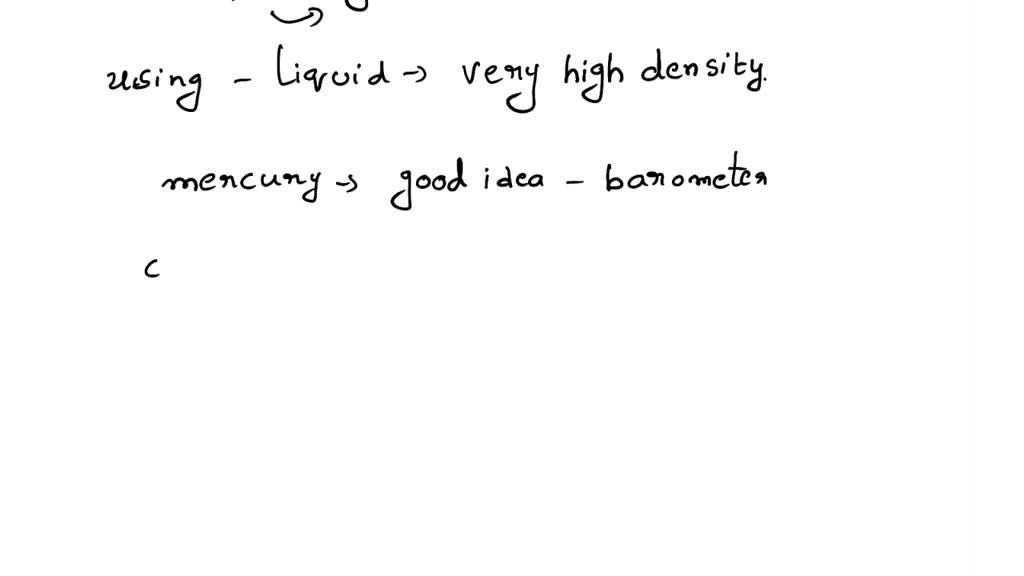 using - Liquid → very high density.
mercury → good idea - barometer
c